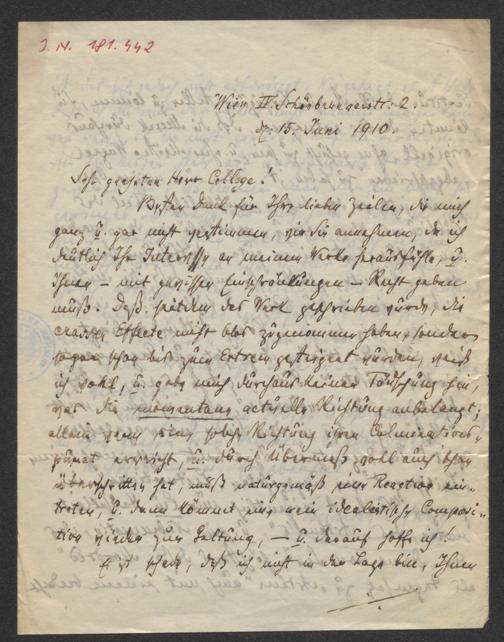 I. N. 181.442
Wien, IV. Schönburgerstr. 2.
d. 15. Juni 1910.
Sehr geehrter Herr College!
Besten Dank für Ihre lieben Zeilen, die mich
ganz u. gar nicht verstimmen, wie Sie annehmen, da ich
deutlich Ihr Interesse an meinem Werke herausfühle, u.
Ihnen – mit gewissen Einschränkungen – Recht geben
muß. Daß, seitdem das Werk geschrieben wurde, die
crassen Effecte nicht blos zugenommen haben, sondern
sogar schon bis zum Extrem gesteigert wurden, weiß
ich wohl, u. gebe mich durchaus keiner Täuschung hin,
was die momentane actuelle Richtung anbelangt;
allein wenn eine solche Richtung ihren Culminations-
punct erreicht, u. durch Übermaß wohl auch schon
überschritten hat, muß naturgemäß eine Reaction ein-
treten, u. dann kömmt eine rein idealistische Composi-
tion wieder zur Geltung, – u. darauf hoffe ich!
Es ist schade, daß ich nicht in der Lage bin, Ihnen